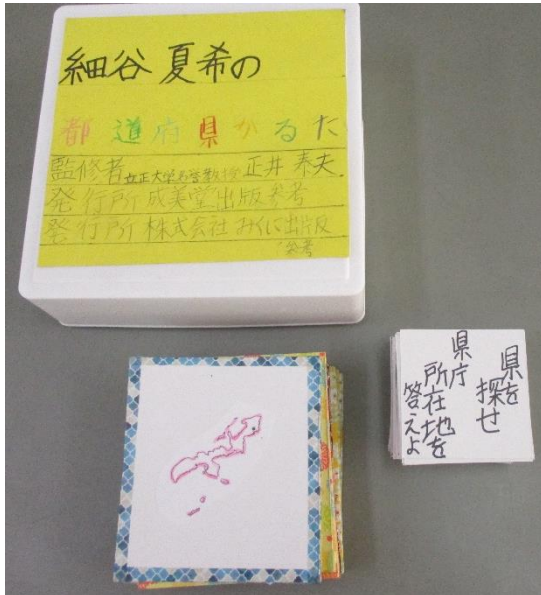 細谷 夏希の
都道府県かるた
監修者 立正大学名誉教授 正井 泰夫
発行所 成美堂出版参考
発行所 株式会社 みくに出版
参考
県を
探せ
県庁
所在地を
答えよ